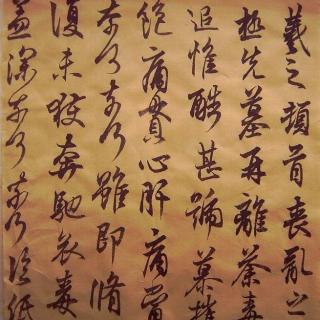 羲之頓首喪亂之
極先墓再離荼毒
追惟酷甚號慕摧
絶痛貫心肝痛當
奈何奈何雖即脩
復未獲奔馳哀毒
益深奈何奈何臨紙